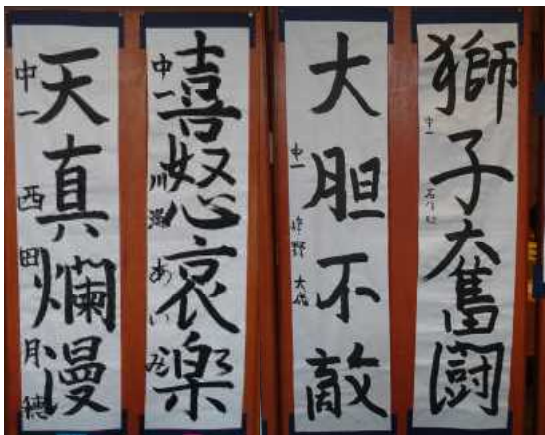 獅子奮闘
中一
大胆不敵
中一 野 大
喜怒哀楽
中一 川 あい
天真爛漫
中一 西田月